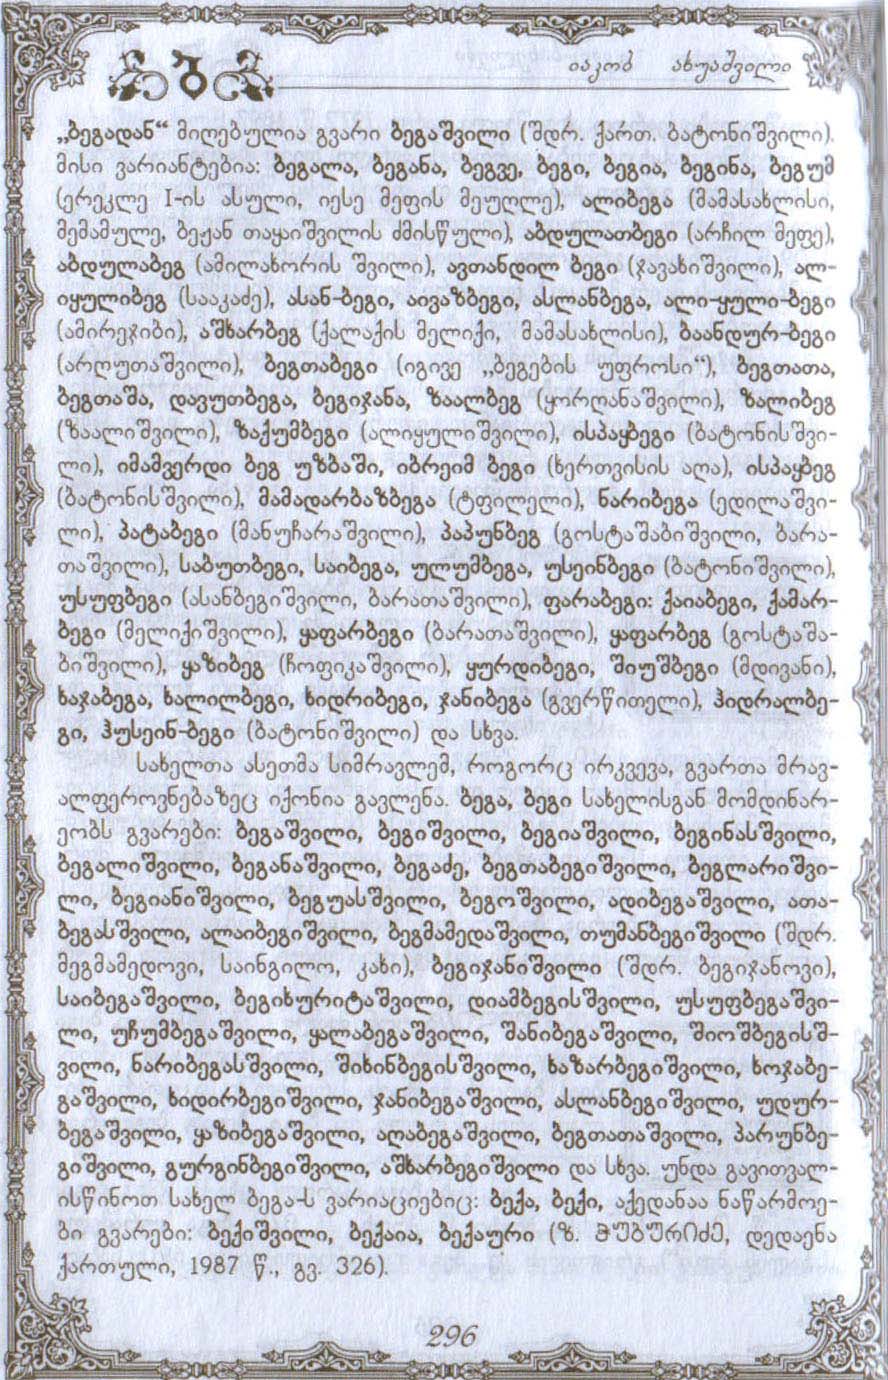 ბ
იაკობ ახუაშვილი
„ბეგადან“ მიღებულია გვარი ბეგაშვილი (შდრ. ქართ. ბატონიშვილი).
მისი ვარიანტებია: ბეგალა, ბეგანა, ბეგვე, ბეგი, ბეგია, ბეგინა, ბეგუმ
(ერეკლე I-ის ასული, იესე მეფის მეუღლე), ალიბეგა (მამასახლისი,
მემამულე, ბეჟან თაყაიშვილის ძმისწული), აბდულათბეგი (არჩილ მეფე),
აბდულაბეგ (ამილახორის შვილი), ავთანდილ ბეგი (ჯავახიშვილი), ალ-
იყულიბეგ (სააკაძე), ასან-ბეგი, აივაზბეგი, ასლანბეგა, ალი-ყული-ბეგი
(ამირეჯიბი), აშხარბეგ (ქალაქის მელიქი, მამასახლისი), ბაანდურ-ბეგი
(არღუთაშვილი), ბეგთაბეგი (იგივე „ბეგების უფროსი“), ბეგთათა,
ბეგთაშა, დავუთბეგა, ბეგიჯანა, ზაალბეგ (ყორღანაშვილი), ზალიბეგ
(ზაალიშვილი), ზაქუმბეგი (ალიყულიშვილი), ისპაყბეგი (ბატონისშვი-
ლი), იმამვერდი ბეგ უზბაში, იბრეიმ ბეგი (ხერთვისის აღა), ისპაყბეგ
(ბატონისშვილი), მამადარბაზბეგა (ტფილელი), ნარიბეგა (ედილაშვი-
ლი), პატაბეგი (მანუჩარაშვილი), პაპუნბეგ (გოსტაშაბიშვილი, ბარა-
თაშვილი), საბუთბეგი, საიბეგა, ულუმბეგა, უსეინბეგი (ბატონიშვილი),
უსუფბეგი (ასანბეგიშვილი, ბარათაშვილი), ფარაბეგი: ქაიაბეგი, ქამარ-
ბეგი (მელიქიშვილი), ყაფარბეგი (ბარათაშვილი), ყაფარბეგ (გოსტაშა-
ბიშვილი), ყაზიბეგ (ჩოფიკაშვილი), ყურდიბეგი, შიუშბეგი (მდივანი),
ხაჯაბეგა, ხალილბეგი, ხიდრიბეგი, ჯანიბეგა (გვერწითელი), ჰიდრალბე-
გი, ჰუსეინ-ბეგი (ბატონიშვილი) და სხვა.
სახელთა ასეთმა სიმრავლემ, როგორც ირკვევა, გვართა მრავ-
ალფეროვნებაზეც იქონია გავლენა. ბეგა, ბეგი სახელისგან მომდინარ-
ეობს გვარები: ბეგაშვილი, ბეგიშვილი, ბეგიაშვილი, ბეგინასშვილი,
ბეგალიშვილი, ბეგანაშვილი, ბეგაძე, ბეგთაბეგიშვილი, ბეგლარიშვი-
ლი, ბეგიანიშვილი, ბეგუასშვილი, ბეგოშვილი, ადიბეგაშვილი, ათა-
ბეგასშვილი, ალაიბეგიშვილი, ბეგმამედაშვილი, თუმანბეგიშვილი (შდრ.
მეგმამედოვი, საინგილო, კახი), ბეგიჯანიშვილი (შდრ. ბეგიჯანოვი),
საიბეგაშვილი, ბეგიხურიტაშვილი, დიამბეგისშვილი, უსუფბეგაშვი-
ლი, უჩუმბეგაშვილი, ყალაბეგაშვილი, შანიბეგაშვილი, შიოშბეგისშ-
ვილი, ნარიბეგასშვილი, შიხინბეგისშვილი, ხაზარბეგიშვილი, ხოჯაბე-
გაშვილი, ხიდირბეგიშვილი, ჯანიბეგაშვილი, ასლანბეგიშვილი, უდურ-
ბეგაშვილი, ყაზიბეგაშვილი, აღაბეგაშვილი, ბეგთათაშვილი, პარუნბე-
გიშვილი, გურგინბეგიშვილი, აშხარბეგიშვილი და სხვა. უნდა გავითვალ-
ისწინოთ სახელ ბეგა-ს ვარიაციებიც: ბექა, ბექი, აქედანაა ნაწარმოე-
ბი გვარები: ბექიშვილი, ბექაია, ბექაური (ზ. ჭუმბურიძე, დედაენა
ქართული, 1987 წ., გვ. 326).
296